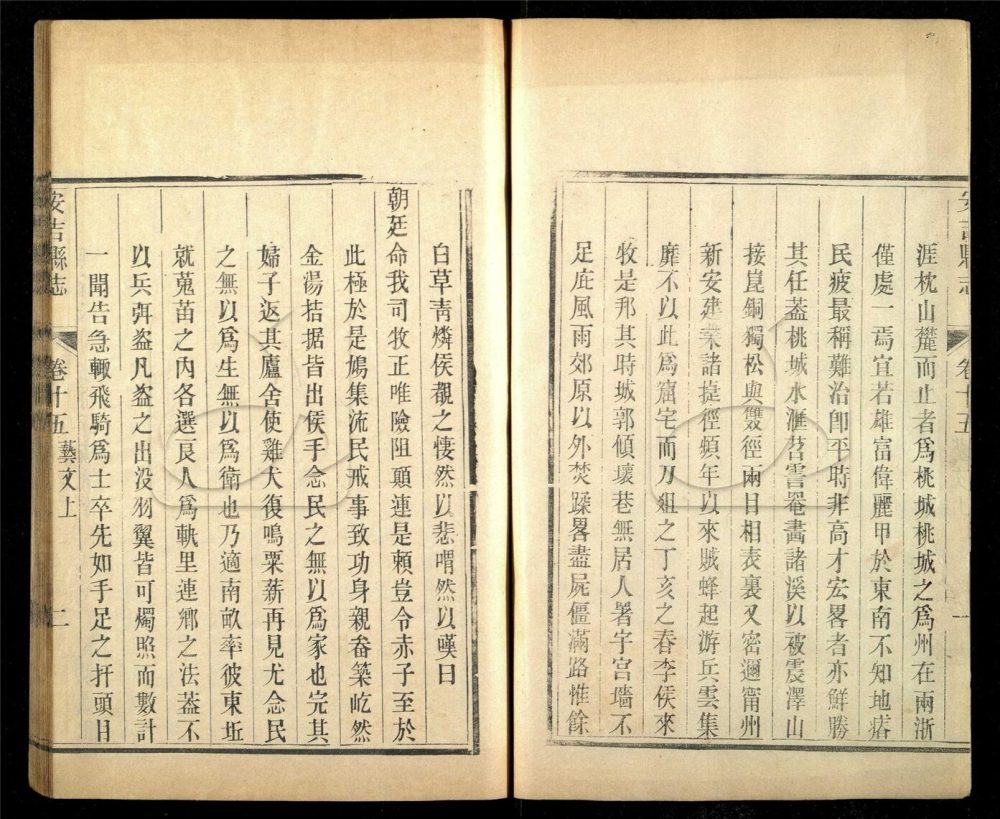 安吉縣志
卷十五
一
涯枕山麓而止者爲桃城桃城之爲州在兩浙
僅處一焉宜若雄富偉麗甲於東南不知地瘠
民疲最稱難治卽平時非高才宏畧者亦鮮勝
其任葢桃城水滙苕霅罨畵諸溪以被震澤山
接崑銅獨松與雙徑兩目相表裏又密邇甯州
新安建業諸捷徑頻年以來賊蜂起游兵雲集
靡不以此爲窟宅而刀俎之丁亥之春李侯來
牧是邦其時城郭傾壞巷無居人署宇宫墻不
足庇風雨郊原以外焚蹂畧盡屍僵滿路惟餘
白草靑燐侯覩之悽然以悲喟然以嘆曰
朝廷命我司牧正唯險阻顚連是賴豈令赤子至於
此極於是鳩集流民戒事致功身親畚築屹然
金湯拮据皆出侯手念民之無以爲家也完其
婦子返其廬舍使雞犬復鳴粟薪再見尤念民
之無以爲生無以爲衛也乃適南畝率彼東坵
就蒐苗之内各選良人爲軌里連鄉之法葢不
以兵弭盗凡盗之出没羽翼皆可燭照而數計
一聞告急輙飛騎爲士卒先如手足之扞頭目
安吉縣志
卷十五
藝文上
二